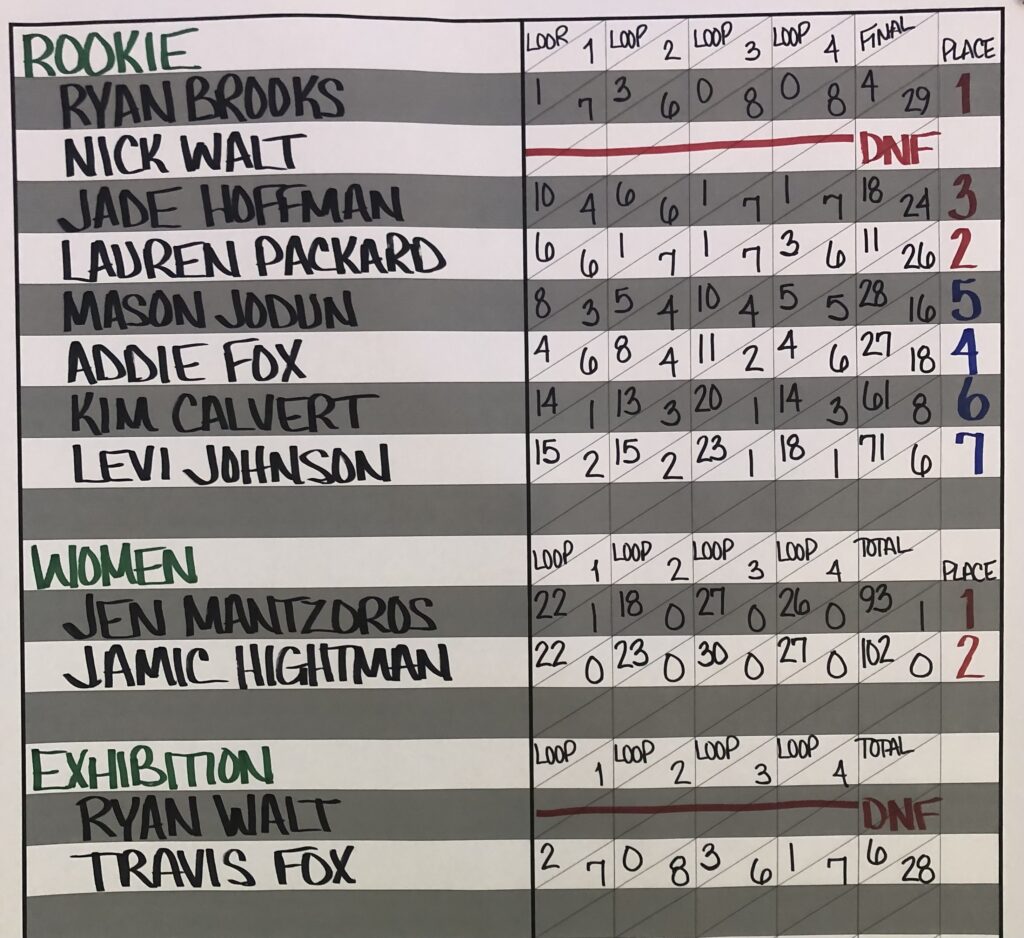 ROOKIE LOOP 1 LOOP 2 LOOP 3 LOOP 4 FINAL PLACE
RYAN BROOKS 1 7 3 6 0 8 0 8 4 29 1
NICK WALT DNF
JADE HOFFMAN 10 4 6 6 1 7 1 7 18 24 3
LAUREN PACKARD 6 6 1 7 1 7 3 6 11 26 2
MASON JODUN 8 3 5 4 10 4 5 5 28 16 5
ADDIE FOX 4 6 8 4 11 2 4 6 27 18 4
KIM CALVERT 14 1 13 3 20 1 14 3 61 8 6
LEVI JOHNSON 15 2 15 2 23 1 18 1 71 6 7
WOMEN LOOP 1 LOOP 2 LOOP 3 LOOP 4 TOTAL PLACE
JEN MANTZOROS 22 1 18 0 27 0 26 0 93 1 1
JAMIC HIGHTMAN 22 0 23 0 30 0 27 0 102 0 2
EXHIBITION LOOP 1 LOOP 2 LOOP 3 LOOP 4 TOTAL
RYAN WALT DNF
TRAVIS FOX 2 7 0 8 3 6 1 7 6 28